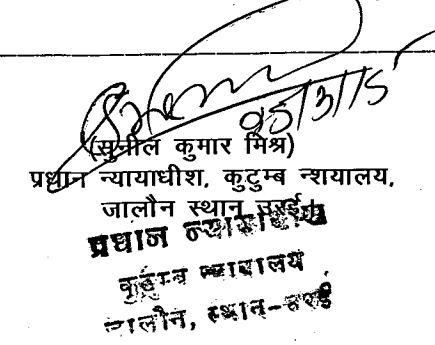 05/3/15
(सुनील कुमार मिश्र)
प्रधान न्यायाधीश, कुटुम्ब न्शयालय,
जालौन स्थान उरई।
प्रधान न्यायाधीश
कुटुम्ब न्यायालय
जालौन, स्थान-उरई